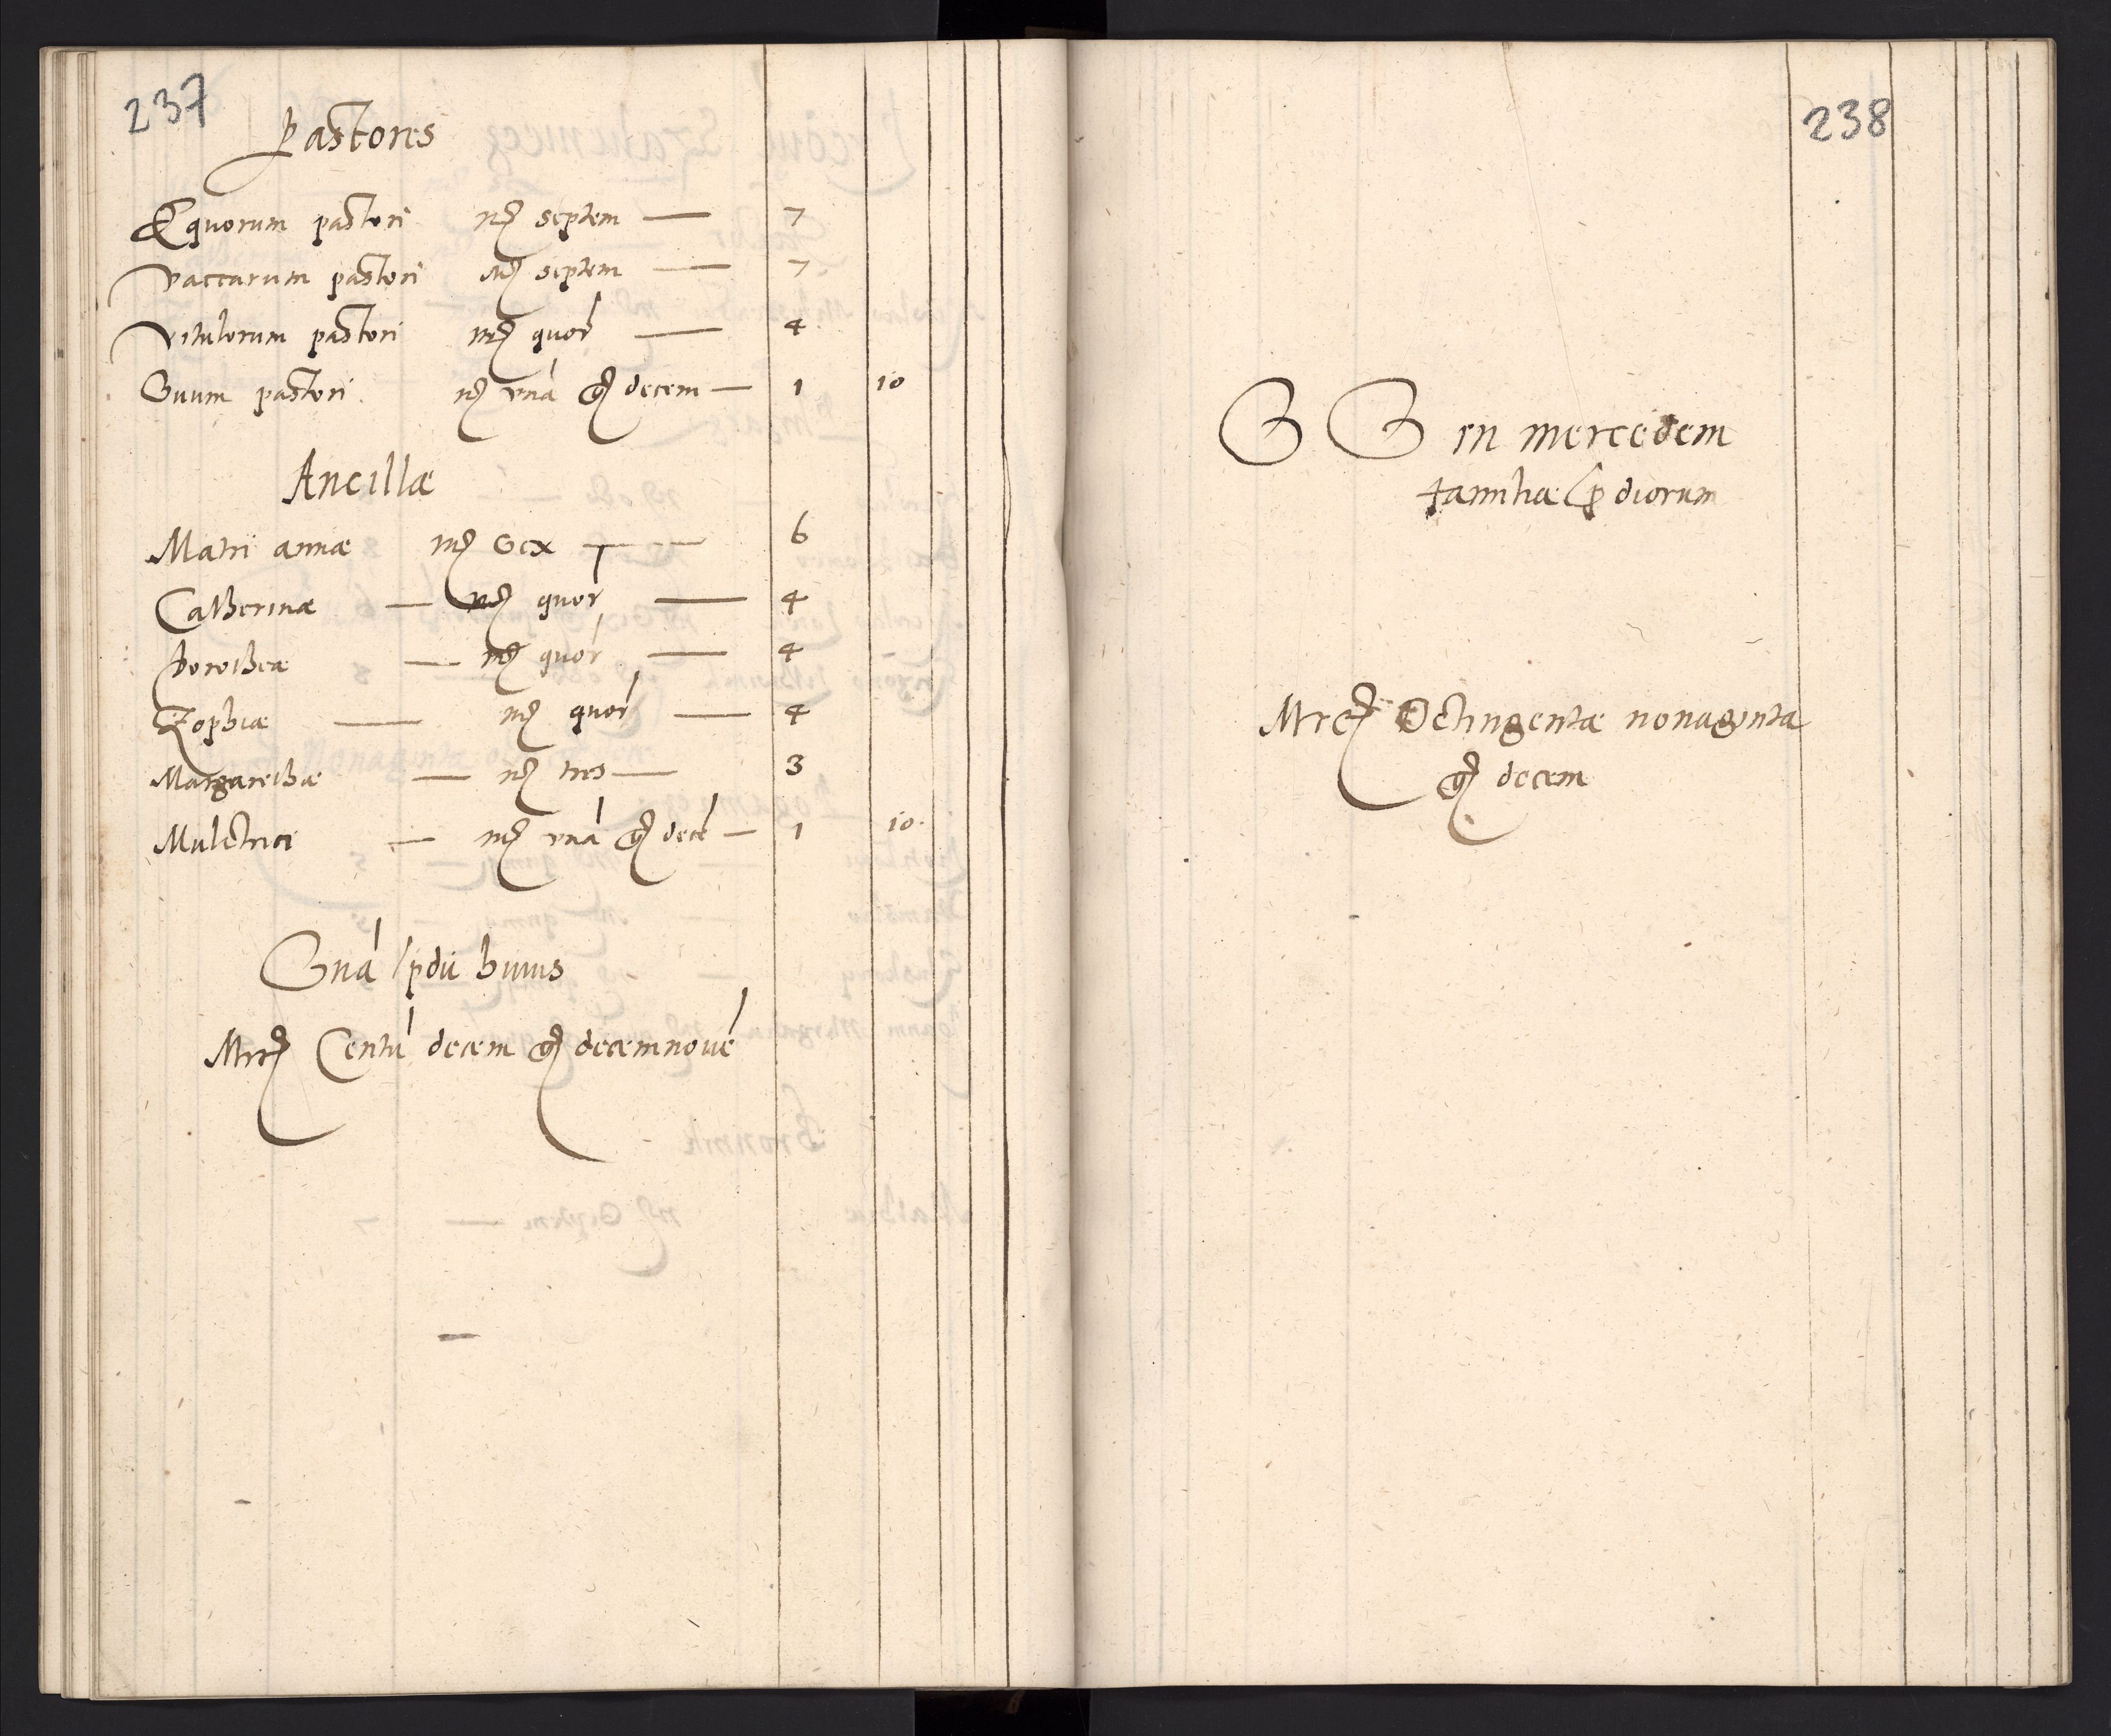 237
Pastores
Equorum pastori mrc septem — 7
Vaccarum pastori mrc septem — 7
Vitulorum pastori mrc quor — 4
Ouum pastori mrc vnā g decem — 1 10
Ancillæ
Matri annæ mrc sex — 6
Catherinæ — mrc quor — 4
Dorotheæ — mrc quor — 4
Zophiæ — mrc quor — 4
Margarethæ — mrc tres — 3
Mulctrici — mrc vnā g decē — 1 10
Snā pdii huius
Mrc Centū decem g decemnouē
238
S S in mercedem
familiæ pdiorum
Mrc Octingentæ nonaginta
g decem